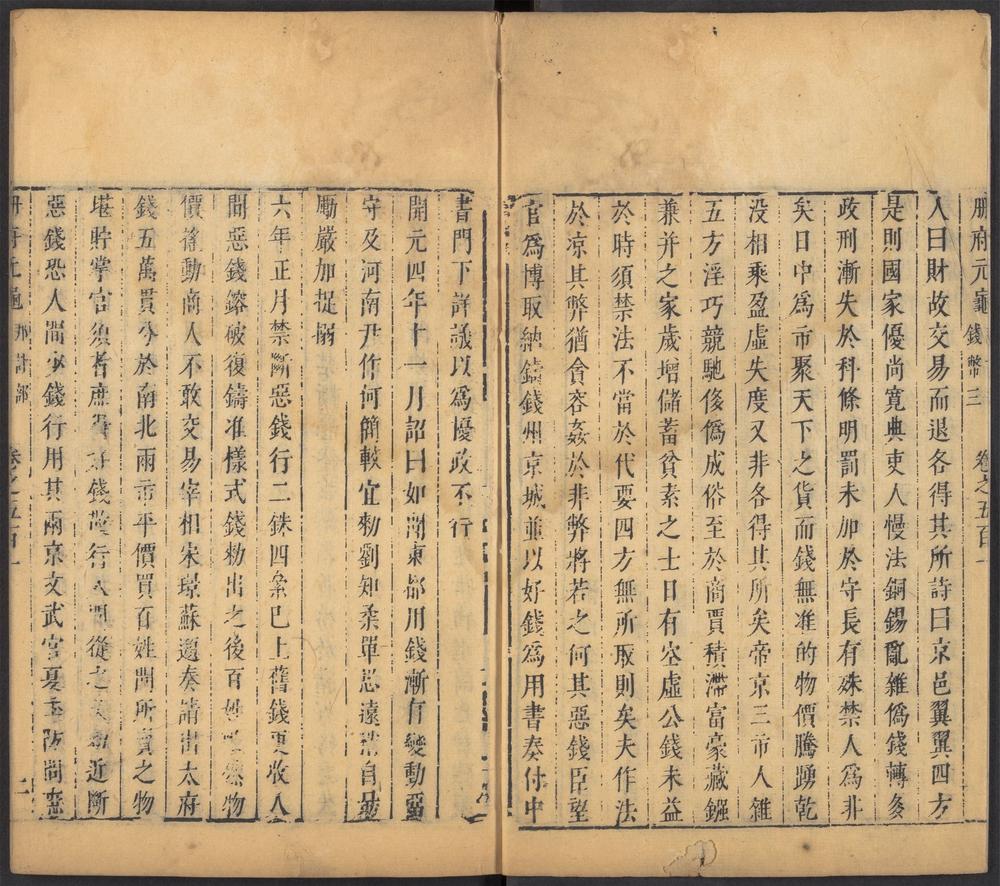 册府元龜 錢幣三 卷之五百一
人曰財故交易而退各得其所詩曰京邑翼翼四方
是則國家優尚寬典吏人慢法銅錫亂雜偽錢轉多
政刑漸失於科條明罰未加於守長有殊禁人爲非
矣日中爲市聚天下之貨而錢無准的物價騰踴乾
没相乘盈虛失度又非各得其所矣帝京三市人雜
五方淫巧競馳侈偽成俗至於商賈積滯富豪藏鏹
兼并之家歲增儲蓄貧素之士日有空虛公錢未益
於時須禁法不當於代要四方無所取則矣夫作法
於凉其弊猶貪容姦於非弊將若之何其惡錢臣望
官爲博取納鑄錢州京城並以好錢爲用書奏付中
書門下詳議以爲擾政不行
開元四年十一月詔曰如聞東都用錢漸有變動惡
守及河南尹作何簡較宜勑劉知柔單思遠
勵嚴加捉
六年正月禁斷惡錢行二銖四絫已上舊錢更收人
間惡錢鎔破復鑄准樣式錢勑出之後百姓
價搖動商人不敢交易宰相宋璟蘇頲奏請出太府
錢五萬貫分於南北兩市平價買百姓間所賣之物
堪貯掌官須者庶 好錢散行人間從之 近斷
惡錢恐人間少錢行用其兩京文武官夏季防閤
册府元龜 邦計部 卷之五百一 二